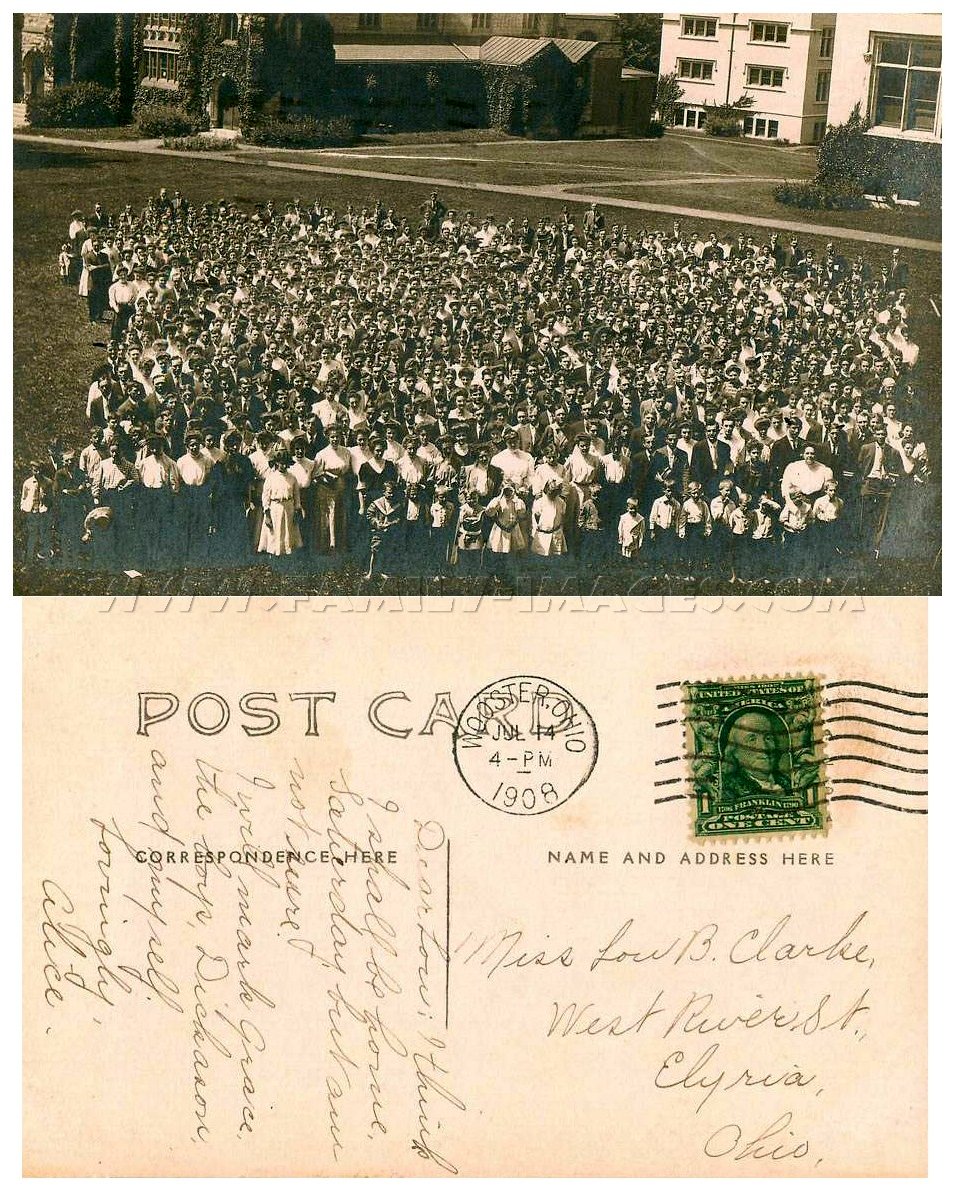 WWW.FAMILY-IMAGES.COM
POST CARD
WOOSTER, OHIO
JUL 14
4-PM
1908
UNITED STATES OF
AMERICA
1 1
1706 FRANKLIN 1790
POSTAGE
ONE CENT
CORRESPONDENCE HERE
NAME AND ADDRESS HERE
Dear Lou; I think
I shall be home,
Saturday, but am
not sure.
I will mark Grace,
the Dickason,
and myself
Lovingly,
Alice.
Miss Lou B. Clarke,
West River St.,
Elyria,
Ohio,